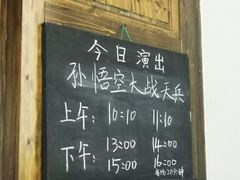 今日演出
孙悟空大战天兵
上午：10:10 11:10
下午：13:00 14:00
15:00 16:00
每场20分钟